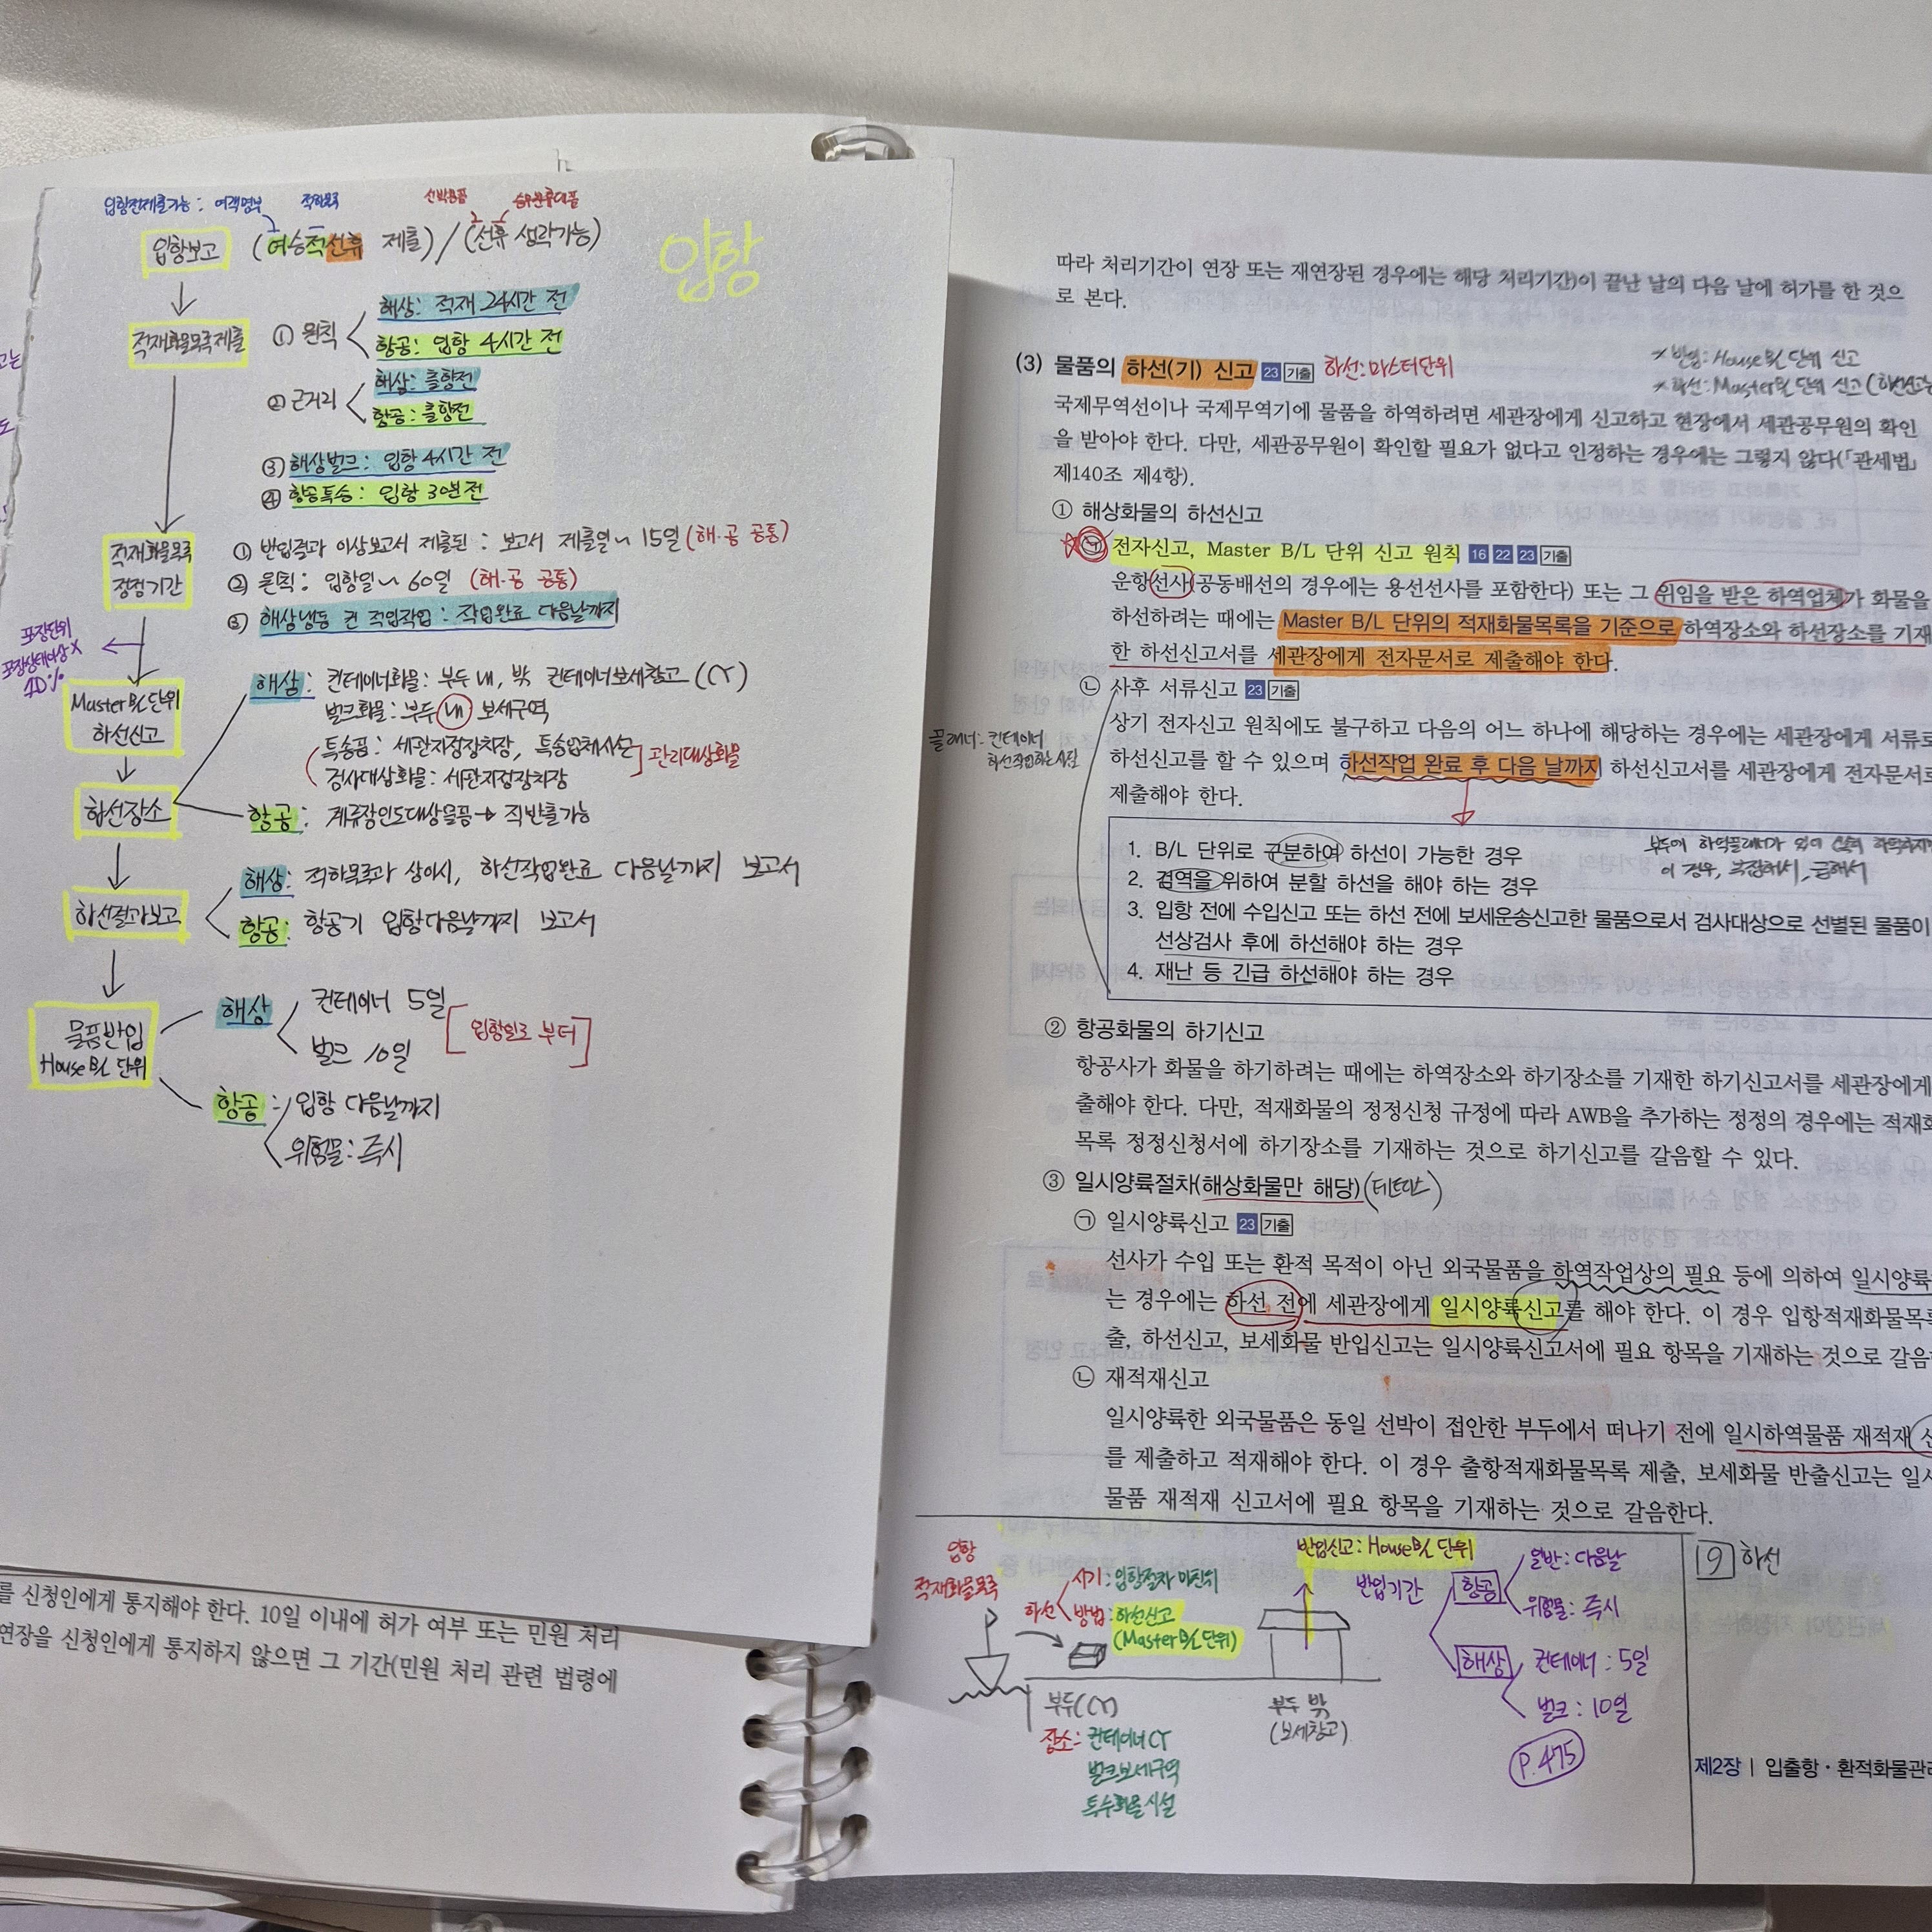 입항전제출가능 : 여객명부 적하목록 선박용품 승무원휴대품
입항보고 (여승적선휴 제출) / (선휴 생략가능)
입항
적재화물목록제출
① 원칙
해상 : 적재 24시간 전
항공 : 입항 4시간 전
② 근거리
해상 : 출항전
항공 : 출항전
③ 해상벌크 : 입항 4시간 전
④ 항공특송 : 입항 30분전
적재화물목록
정정기간
① 반입결과 이상보고서 제출된 : 보고서 제출일~15일 (해·공 공통)
② 원칙 : 입항일~60일 (해·공 공통)
③ 해상냉동 건 적입작업 : 작업완료 다음날까지
포장단위
포장상태이상X
10%
Master B/L 단위
하선신고
해상 : 컨테이너화물 : 부두 내, 밖 컨테이너보세창고 (CY)
벌크화물 : 부두 내 보세구역
특송품 : 세관지정장치장, 특송업체시설
검사대상화물 : 세관지정장치장
관리대상화물
하선장소
항공 : 계류장인도대상물품→직반출가능
하선결과보고
해상 : 적하목록과 상이시, 하선작업완료 다음날까지 보고서
항공 : 항공기 입항다음날까지 보고서
물품반입
House B/L 단위
해상
컨테이너 5일
벌크 10일
입항일로 부터
항공 : 입항 다음날까지
위험물 : 즉시
를 신청인에게 통지해야 한다. 10일 이내에 허가 여부 또는 민원 처리
연장을 신청인에게 통지하지 않으면 그 기간(민원 처리 관련 법령에
따라 처리기간이 연장 또는 재연장된 경우에는 해당 처리기간)이 끝난 날의 다음 날에 허가를 한 것으
로 본다.
※ 반입 : House B/L 단위 신고
※ 하선 : Master B/L 단위 신고 (하선신고는
(3) 물품의 하선(기) 신고 23 기출 하선:마스터단위
국제무역선이나 국제무역기에 물품을 하역하려면 세관장에게 신고하고 현장에서 세관공무원의 확인
을 받아야 한다. 다만, 세관공무원이 확인할 필요가 없다고 인정하는 경우에는 그렇지 않다(「관세법」
제140조 제4항).
① 해상화물의 하선신고
㉠ 전자신고, Master B/L 단위 신고 원칙 16 22 23 기출
운항선사(공동배선의 경우에는 용선선사를 포함한다) 또는 그 위임을 받은 하역업체가 화물을
하선하려는 때에는 Master B/L 단위의 적재화물목록을 기준으로 하역장소와 하선장소를 기재
한 하선신고서를 세관장에게 전자문서로 제출해야 한다.
㉡ 사후 서류신고 23 기출
상기 전자신고 원칙에도 불구하고 다음의 어느 하나에 해당하는 경우에는 세관장에게 서류로
하선신고를 할 수 있으며 하선작업 완료 후 다음 날까지 하선신고서를 세관장에게 전자문서로
제출해야 한다.
컨테이너
1. B/L 단위로 구분하여 하선이 가능한 경우
2. 검역을 위하여 분할 하선을 해야 하는 경우
3. 입항 전에 수입신고 또는 하선 전에 보세운송신고한 물품으로서 검사대상으로 선별된 물품이
선상검사 후에 하선해야 하는 경우
4. 재난 등 긴급 하선해야 하는 경우
② 항공화물의 하기신고
항공사가 화물을 하기하려는 때에는 하역장소와 하기장소를 기재한 하기신고서를 세관장에게
출해야 한다. 다만, 적재화물의 정정신청 규정에 따라 AWB을 추가하는 정정의 경우에는 적재화
목록 정정신청서에 하기장소를 기재하는 것으로 하기신고를 갈음할 수 있다.
③ 일시양륙절차(해상화물만 해당)
㉠ 일시양륙신고 23 기출
선사가 수입 또는 환적 목적이 아닌 외국물품을 하역작업상의 필요 등에 의하여 일시양륙
는 경우에는 하선 전에 세관장에게 일시양륙신고를 해야 한다. 이 경우 입항적재화물목록
출, 하선신고, 보세화물 반입신고는 일시양륙신고서에 필요 항목을 기재하는 것으로 갈음
㉡ 재적재신고
일시양륙한 외국물품은 동일 선박이 접안한 부두에서 떠나기 전에 일시하역물품 재적재
를 제출하고 적재해야 한다. 이 경우 출항적재화물목록 제출, 보세화물 반출신고는 일시
물품 재적재 신고서에 필요 항목을 기재하는 것으로 갈음한다.
입항
적재화물목록
하선
시기 : 입항절차 마친뒤
방법 : 하선신고
(Master B/L 단위)
부두(CY)
장소 : 컨테이너 CY
벌크보세구역
특수화물시설
반입신고 : House B/L 단위
부두 밖
(보세창고)
반입기간
항공
일반 : 다음날
위험물 : 즉시
해상
컨테이너 : 5일
벌크 : 10일
P.475
9 하선
제2장 | 입출항·환적화물관리